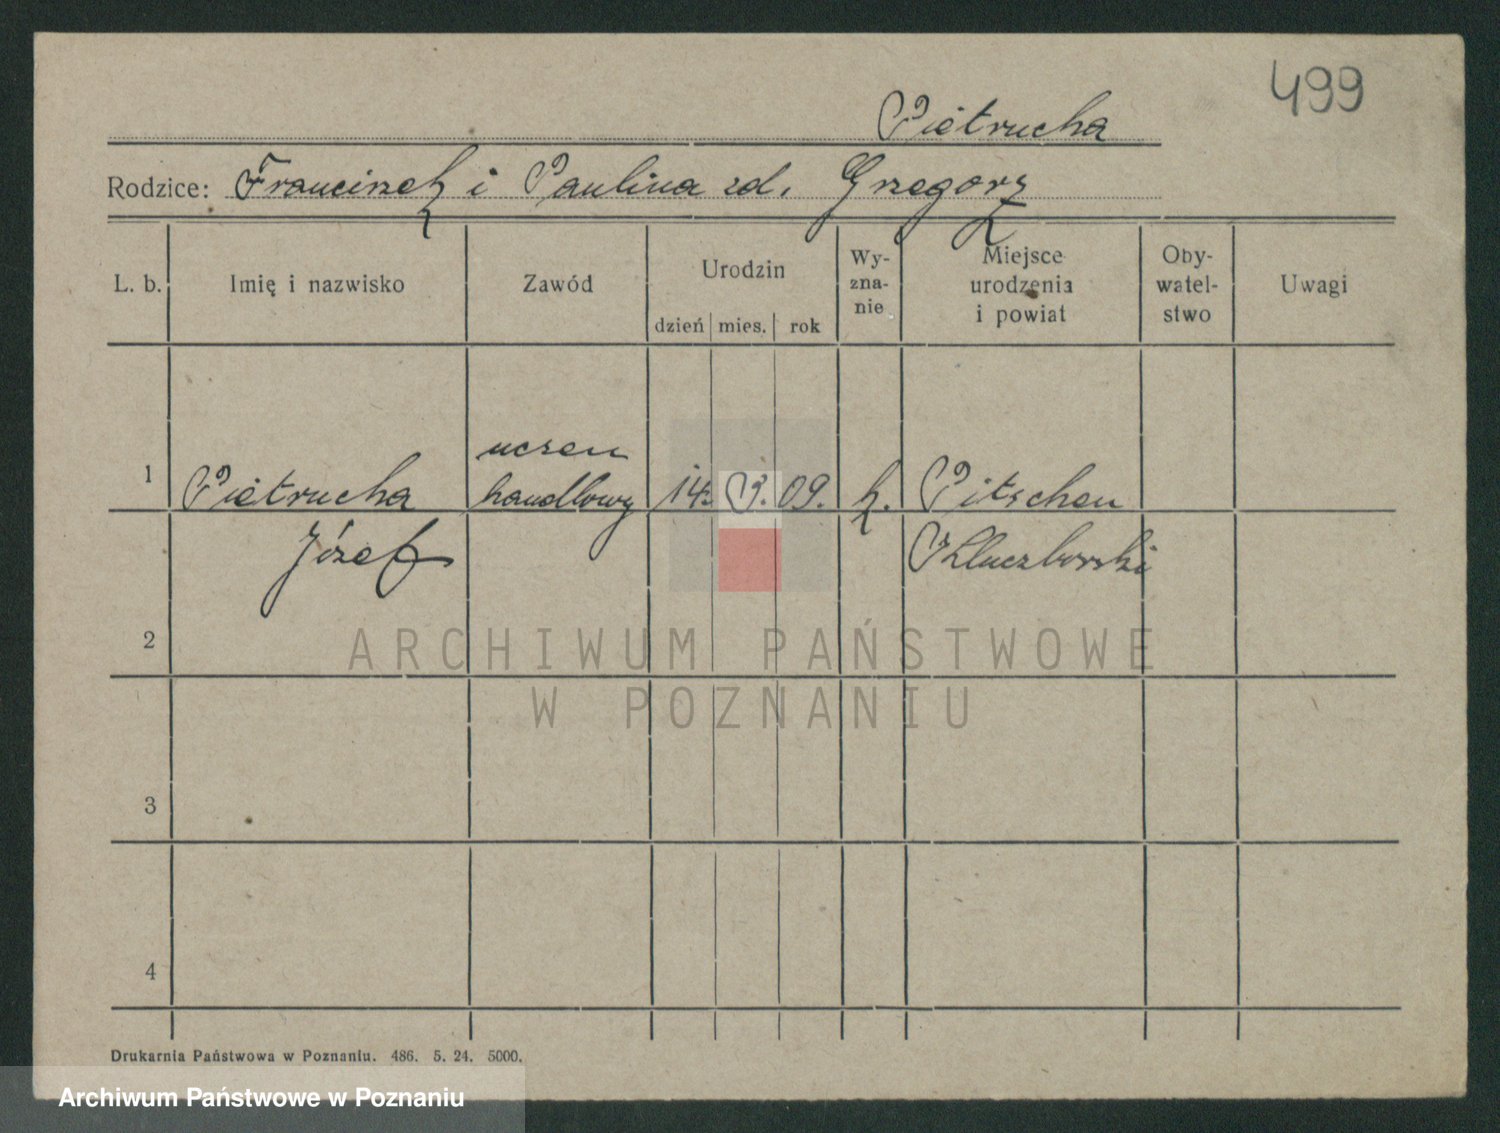 499
Pietrucha
Rodzice: Franciszek i Paulina zd. Grzegorz
L. b.
Imię i nazwisko
Zawód
Urodzin
dzień mies. rok
Wy-
zna-
nie
Miejsce
urodzenia
i powiat
Oby-
watel-
stwo
Uwagi
1
Pietrucha
Józef
uczen
handlowy
14. 3. 09.
k.
Pitschen
Kluczborski
2
3
4
ARCHIWUM PAŃSTWOWE
W POZNANIU
Drukarnia Państwowa w Poznaniu. 486. 5. 24. 5000.
Archiwum Państwowe w Poznaniu